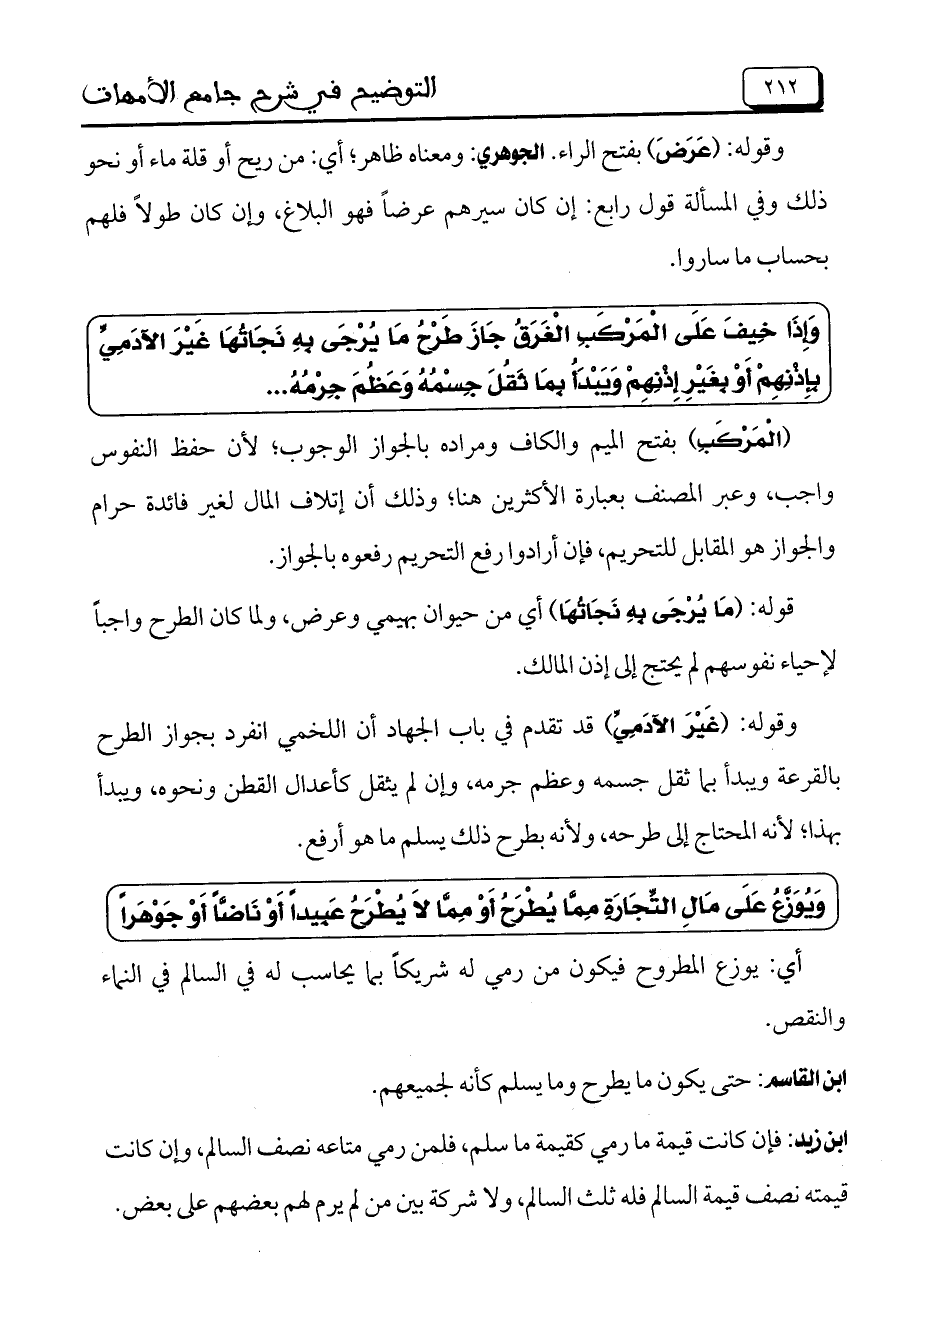 ٢١٢
التوضيح في شرح جامع الأمهات
وقوله: (عَرَضَ) بفتح الراء. الجوهري: ومعناه ظاهر؛ أي: من ريح أو قلة ماء أو نحو
ذلك وفي المسألة قول رابع: إن كان سيرهم عرضاً فهو البلاغ، وإن كان طولاً فلهم
بحساب ما ساروا.
وَإِذَا خِيفَ عَلَى الْمَرْكَبِ الْغَرَقُ جَازَ طَرْحُ مَا يُرْجَى بِهِ نَجَاتُهَا غَيْرَ الآدَمِيِّ
بِإِذْنِهِمْ أَوْ بِغَيْرِ إِذْنِهِمْ وَيَبْدَأُ بِمَا ثَقُلَ جِسْمُهُ وَعَظُمَ جِرْمُهُ...
(الْمَرْكَبِ) بفتح الميم والكاف ومراده بالجواز الوجوب؛ لأن حفظ النفوس
واجب، وعبر المصنف بعبارة الأكثرين هنا؛ وذلك أن إتلاف المال لغير فائدة حرام
والجواز هو المقابل للتحريم، فإن أرادوا رفع التحريم رفعوه بالجواز.
قوله: (مَا يُرْجَى بِهِ نَجَاتُهَا) أي من حيوان بهيمي وعرض، ولما كان الطرح واجباً
لإحياء نفوسهم لم يحتج إلى إذن المالك.
وقوله: (غَيْرَ الآدَمِيِّ) قد تقدم في باب الجهاد أن اللخمي انفرد بجواز الطرح
بالقرعة ويبدأ بما ثقل جسمه وعظم جرمه، وإن لم يثقل كأعدال القطن ونحوه، ويبدأ
بهذا؛ لأنه المحتاج إلى طرحه، ولأنه بطرح ذلك يسلم ما هو أرفع.
وَيُوَزَّعُ عَلَى مَالِ التِّجَارَةِ مِمَّا يُطْرَحُ أَوْ مِمَّا لاَ يُطْرَحُ عَبِيداً أَوْ نَاضّاً أَوْ جَوْهَراً
أي: يوزع المطروح فيكون من رمي له شريكاً بما يحاسب له في السالم في النماء
والنقص.
ابن القاسم: حتى يكون ما يطرح وما يسلم كأنه لجميعهم.
ابن زيد: فإن كانت قيمة ما رمي كقيمة ما سلم، فلمن رمي متاعه نصف السالم، وإن كانت
قيمته نصف قيمة السالم فله ثلث السالم، ولا شركة بين من لم يرم لهم بعضهم على بعض.